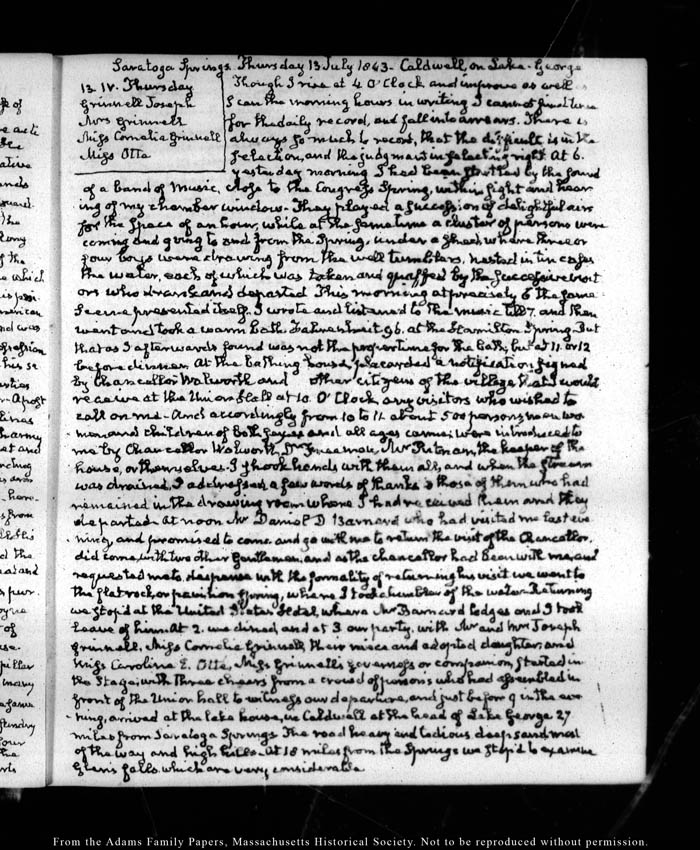 Saratoga Springs. Thursday 13 July 1843 - Caldwell, on Lake-George
13. IV. Thursday
Grinnell Joseph
Mrs Grinnell
Miss Cornelia Grinnell
Miss Otte
Though I rise at 4 O'Clock and improve as well as
I can the morning hours in writing I cannot find time
for the daily record, and fall into arrears. There is
always so much to record, that the difficult is in the
selection, and the judgment in selecting right. At 6.
yesterday morning I had been startled by the sound
of a band of music, close to the Congress Spring, within sight and hear
ing of my chamber window. They played a succession of delightful airs
for the space of an hour, while at the same time a cluster of persons were
coming and going to and from the Spring, under a shed, where three or
four boys were drawing from the well tumblers, nested in tin cases
the water, each of which was taken and quaffed by the successive visit
ors who drank and departed. This morning at precisely 6 the same
scene presented itself. I wrote and listened to the music till 7. and then
went and took a warm bath Fahrenheit 96. at the Hamilton Spring. But
that as I afterwards found was not the proper time for the bath, but at 11 or 12
before dinner. At the bathing house, placarded a notification, signed
by Chancellor Walworth and other citizens of the village that I would
receive at the Union Hall at 10. O'Clock, any visitors who wished to
call on me - And accordingly from 10 to 11. about 500 persons, men wo
men and children of both sexes and all ages came; were introduced to
me by Chancellor Walworth, Dr Freeman, Mr Putnam, the keeper of the
house, or themselves. I shook hands with them all, and when the stream
was drained, I addressed a few words of thanks to those of them who had
remained in the drawing room where I had received them and they
departed. At noon Mr Daniel D Barnard who had visited me last eve
ning, and promised to come, and go with me to return the visit of the Chancellor,
did come, with two other Gentlemen, and as the chancellor had been with me, and
requested me to dispense with the formality of returning his visit we went to
the flat rock, or pavilion Spring, where I took a tumbler of the water. Returning
we stop'd at the United States Hotel, where Mr Barnard lodges and I took
leave of him. At 2. we dined, and at 3 our party, with Mr and Mrs Joseph
Grinnell, Miss Cornelia Grinnell, their niece and adopted daughter, and
Miss Caroline E. Otte, Miss Grinnell's governess or companion, started in
the Stage; with three cheers from a crowd of persons who had assembled in
front of the Union hall to witness our departure, and just before 9 in the eve
ning, arrived at the lake house, in Caldwell at the head of Lake George 27
miles from Saratoga Springs. The road heavy and tedious deep sand most
of the way and high hills. At 18 miles from the Springs we stop'd to examine
Glens falls which are very considerable
From the Adams Family Papers, Massachusetts Historical Society. Not to be reproduced without permission.